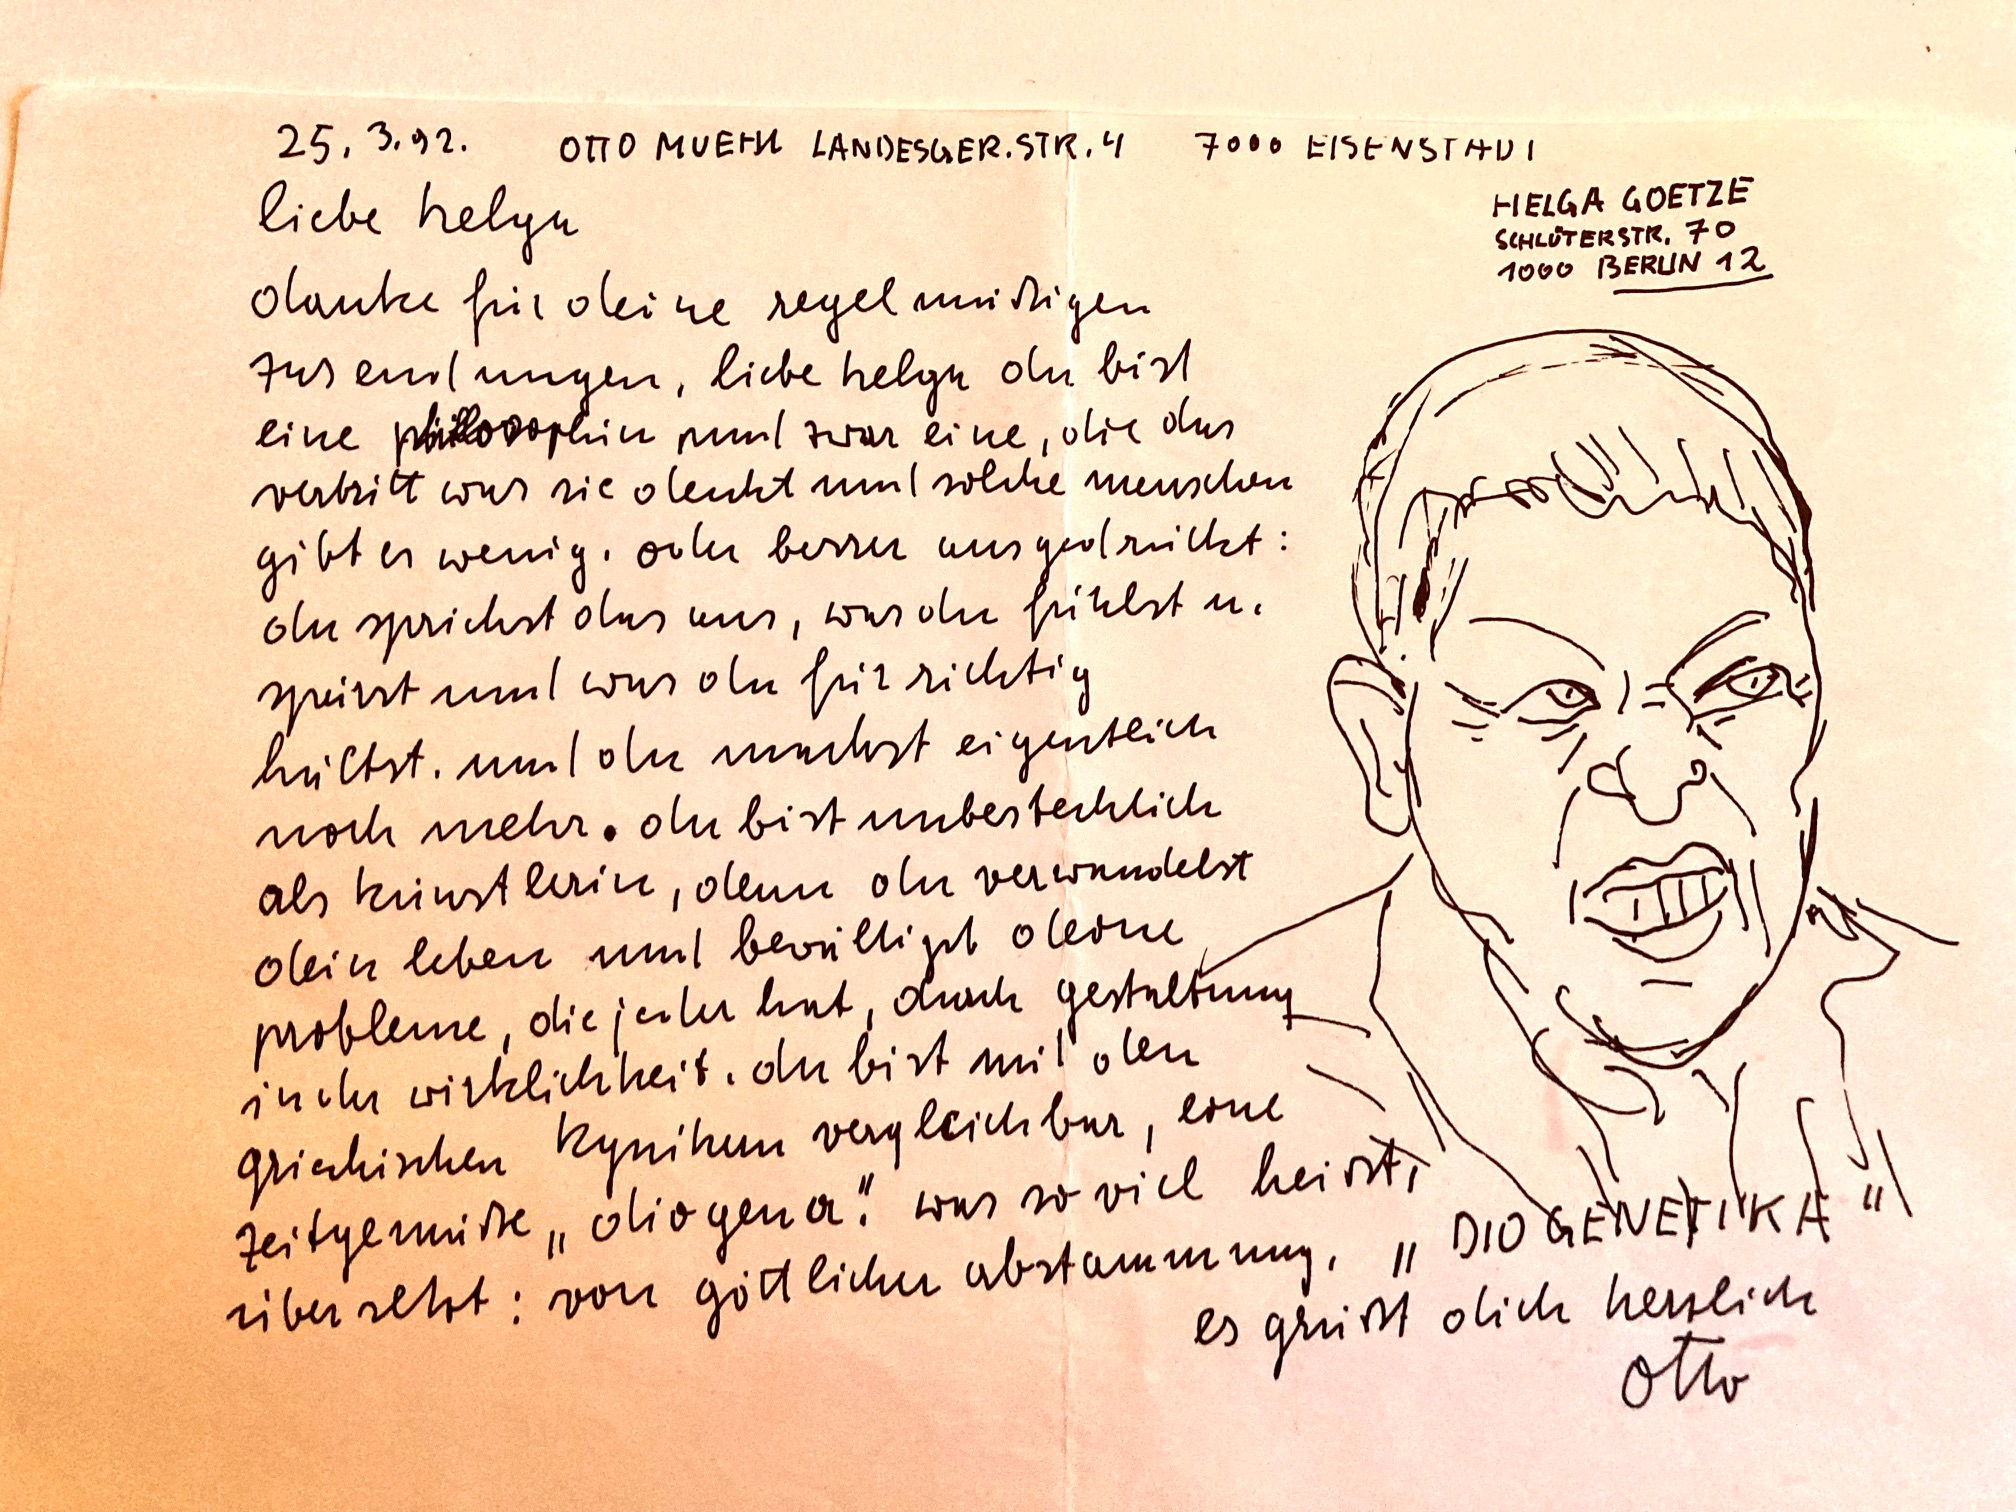 25. 3. 92. OTTO MUEHL LANDESGER.STR. 4 7000 EISENSTADT
HELGA GOETZE
SCHLÜTERSTR. 70
1000 BERLIN 12
liebe helga
danke für deine regelmäßigen
zusendungen, liebe helga du bist
eine philosophin und zwar eine, die das
vertritt was sie denkt und solche menschen
gibt es wenig. oder besser ausgedrückt:
du sprichst das aus, was du fühlst u.
spürst und was du für richtig
hältst. und du machst eigentlich
noch mehr. du bist unbestechlich
als künstlerin, denn du verwandelst
dein leben und bewältigst deine
probleme, die jeder hat, durch gestaltung
in der wirklichkeit. du bist mit den
griechischen kynikern vergleichbar, eine
zeitgemäße „diogena". was so viel heisst,
übersetzt: von göttlicher abstammung. „DIOGENETIKA"
es grüßt dich herzlich
otto